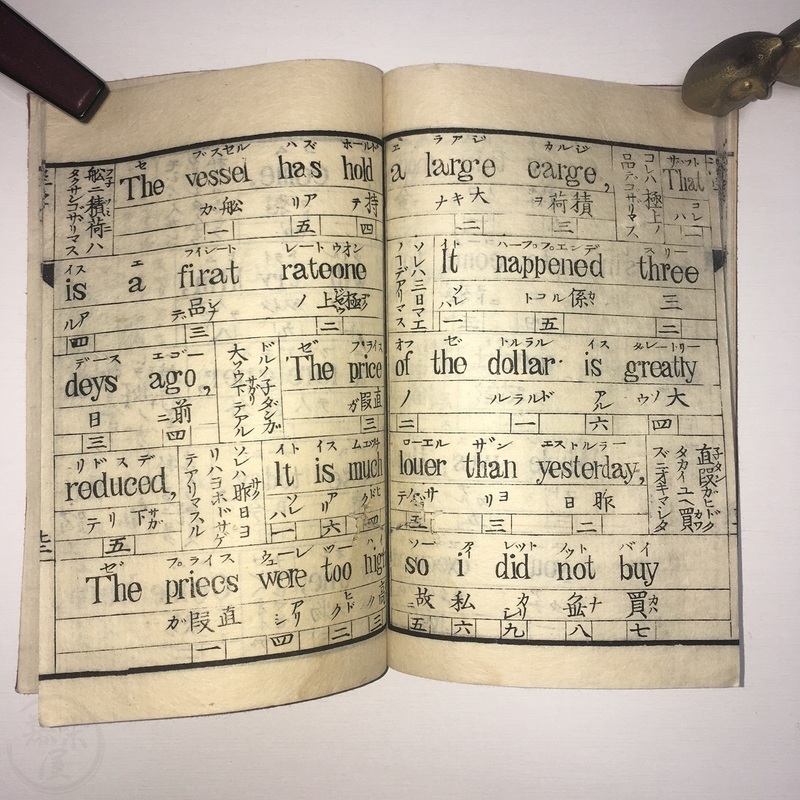 ゼ ブスセル ハズ ホールド エ ラアジ カルジ
The vessel has hold a large carge,
ガ船 リア テ持 ナキ大 ヲ荷積
一 五 四 二 三
船ニ積荷ハ
タクサンゴザリマス
コレハ極上ノ
品デコザリマス
That
コレハ
一
イス エ フイレート レートウオン
is a firat rateone
ルア デ品 ノ上極
四 三 二
ソレハ三日マエ
ノコデアリマス
イト ハーププエンデ スリー
It nappened three
ソレ トコル係 三
一 五 二
デース エゴー
deys ago,
日 ニ前
三 四
ドルノ子ダンガ
大ソウ下テアル
ゼ プライス オフ ゼ トルラル イス グレートリー
The price of the dollar is greatly
ガ直段 ノ ルラルド アル ソウ大
三 二 一 六 四
リドスデ
reduced,
テリ下
五
ソレハ昨日ヨ
リハヨホドサゲ
テアリマスル
イト イス ムエツチ ローエル ザン エストルラー
It is much louer than yesterday,
ソレ アリ リヨ 日昨
一 六 四 五 三 二
直段ガヒドク
タカイユヘ買
ズニオキマシタ
ゼ プライス ウェーレ ツー ソー アイ レット ノット バイ
The priecs were too so i did not buy
ガ段直 シリア クドヒ 故 私 ナ 買
一 四 三 二 五 六 九 八 七